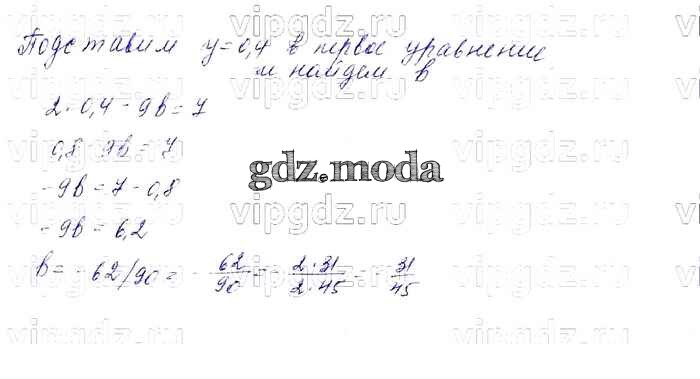 vipgdz.ru vipgdz.ru vipgdz.ru
Подставим y=0,4 в первое уравнение
и найдем в
2·0,4-9в=7
vipgdz.ru vipgdz.ru vipgdz.ru
0,8-9в=7
gdz.moda
-9в=7-0,8
vipgdz.ru vipgdz.ru vipgdz.ru
-9в=6,2
в=-62/90=-62/90=-2·31/2·45=-31/45
vipgdz.ru vipgdz.ru vipgdz.ru
vipgdz.ru vipgdz.ru vipgdz.ru